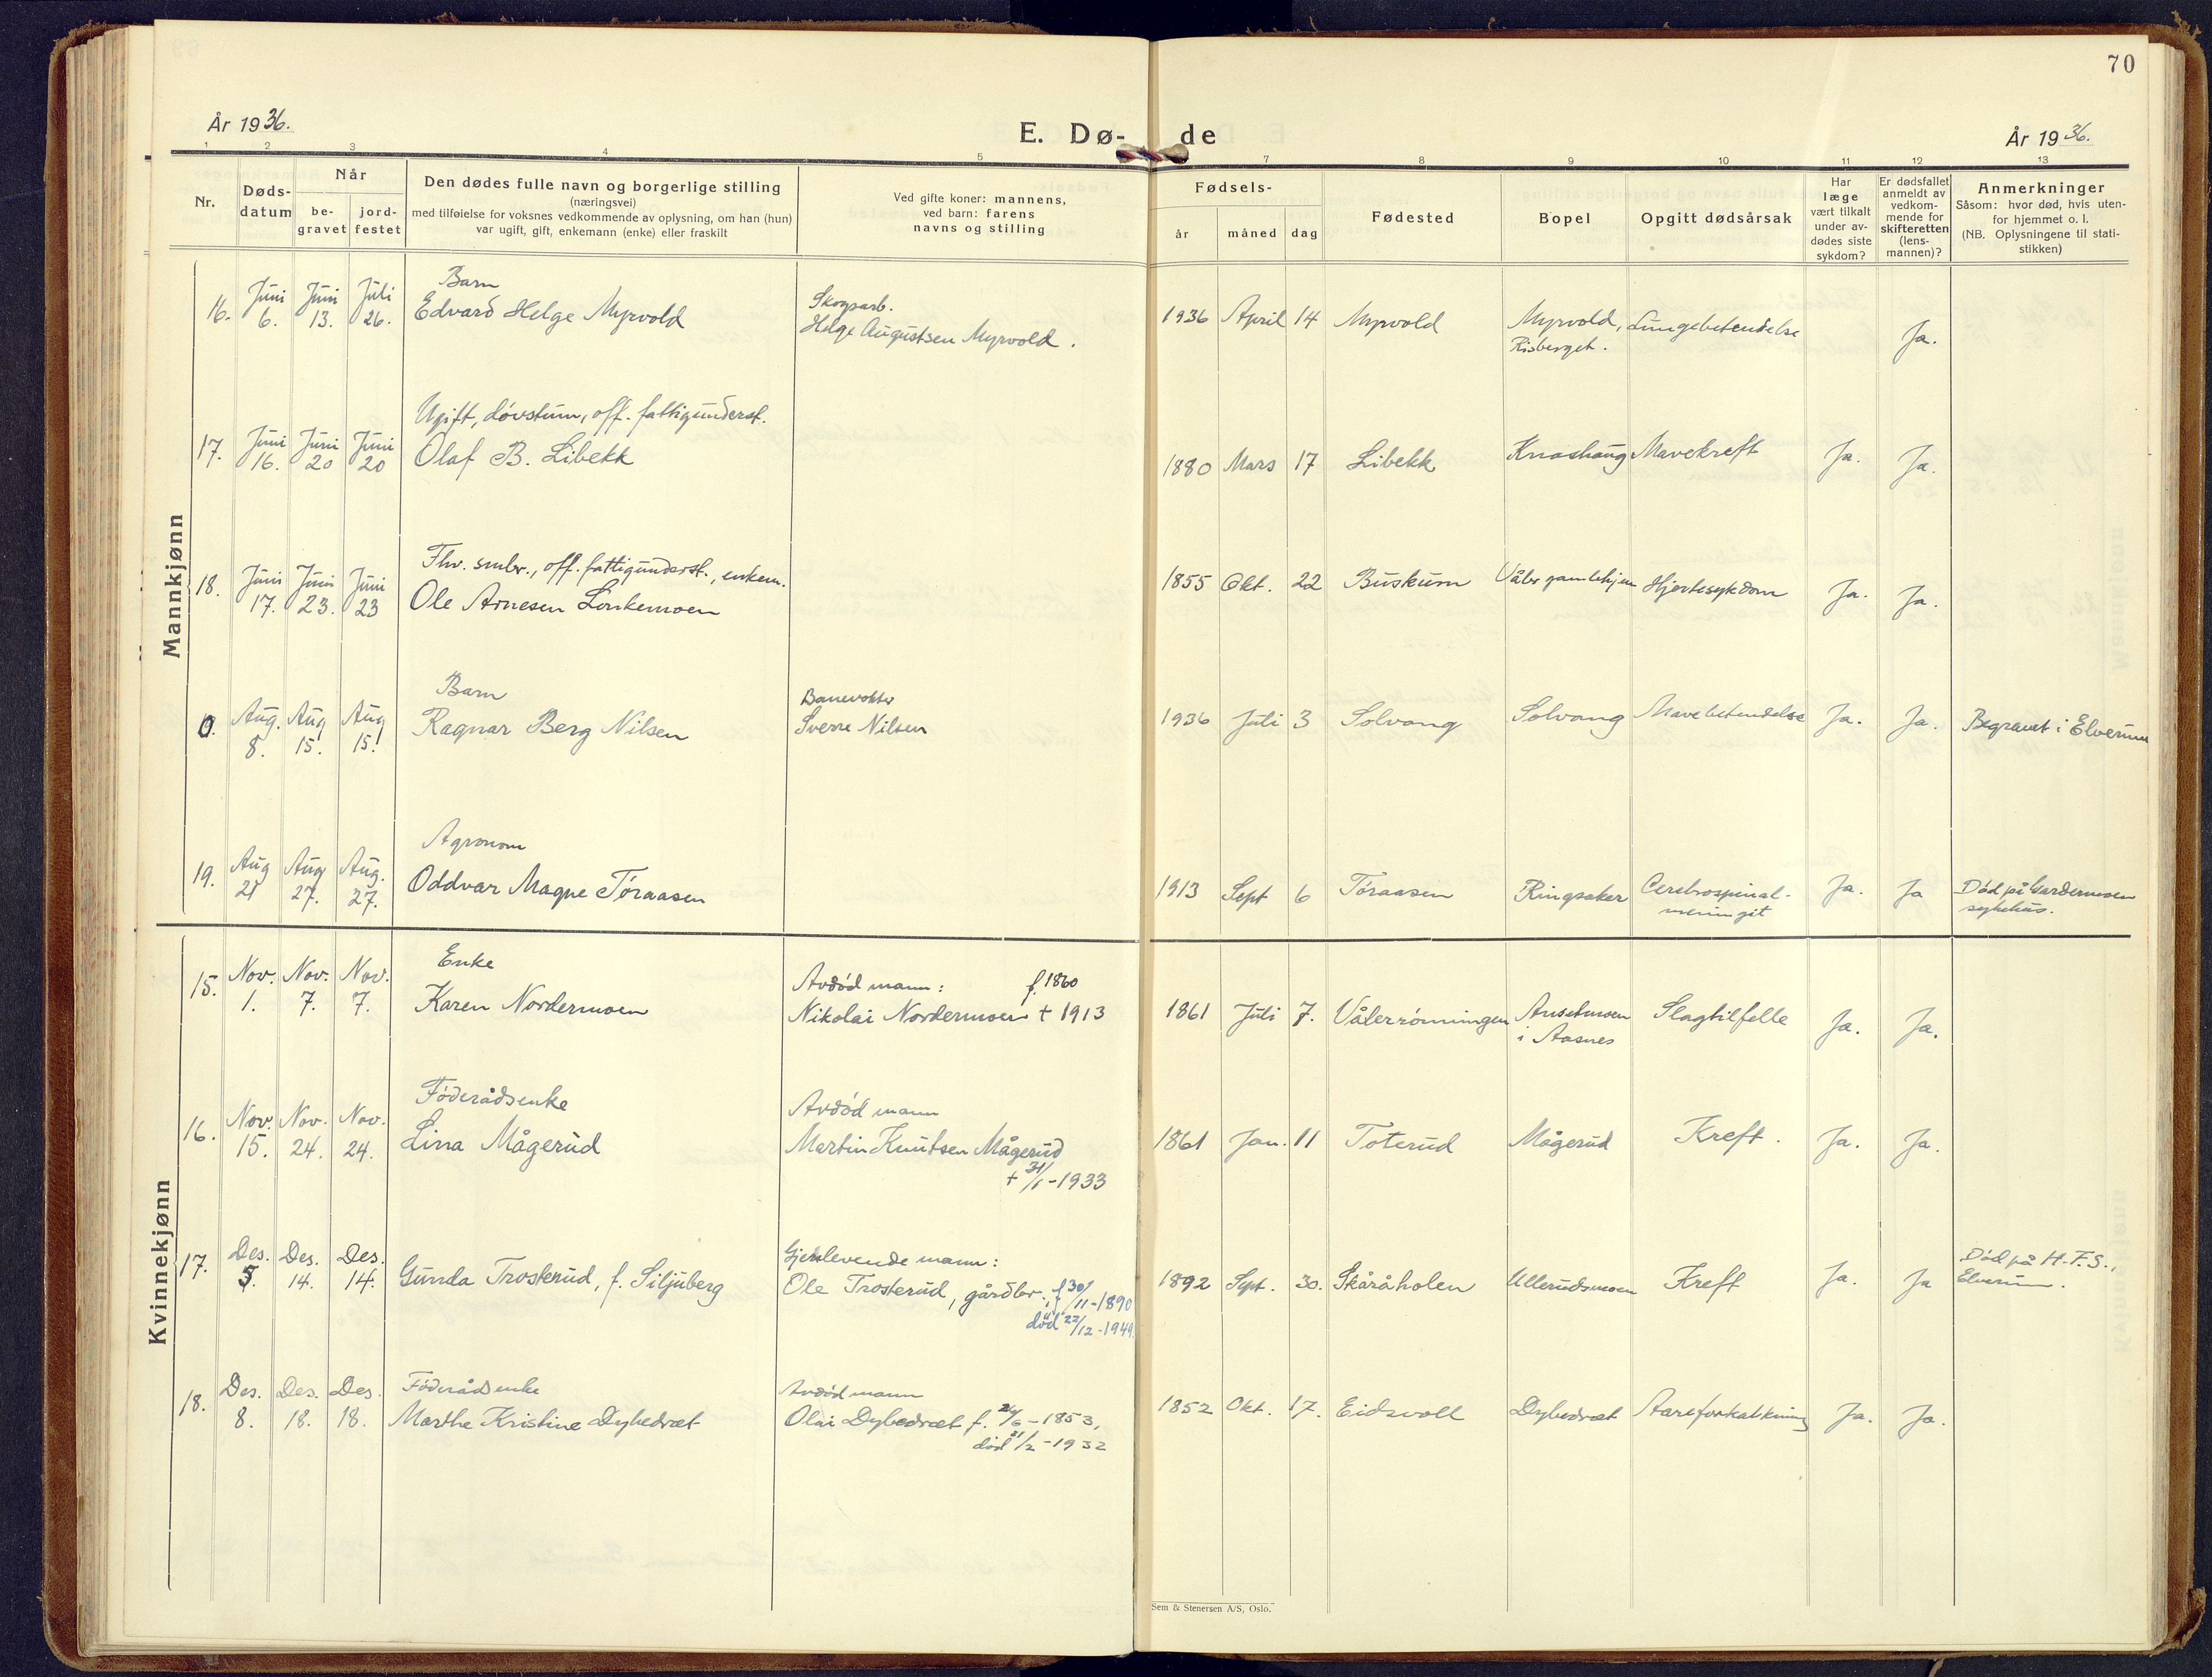 70
År 1936.
E. Dø- de
År 1936.
1 2 3 4 5 7 8 9 10 11 12 13
Nr.
Døds-
datum
Når
be-
gravet
jord-
festet
Den dødes fulle navn og borgerlige stilling
(næringsvei)
med tilføielse for voksnes vedkommende av oplysning, om han (hun)
var ugift, gift, enkemann (enke) eller fraskilt
Ved gifte koner: mannens,
ved barn: farens
navns og stilling
Fødsels-
år måned dag
Fødested
Bopel
Opgitt dødsårsak
Har
læge
vært tilkalt
under av-
dødes siste
sykdom?
Er dødsfallet
anmeldt av
vedkom-
mende for
skifteretten
(lens-
mannen)?
Anmerkninger
Såsom: hvor død, hvis uten-
for hjemmet o. l.
(NB. Oplysningene til stati-
stikken)
Mannkjønn
16. Juni 6. Juni 13. Juli 26.
Barn
Edvard Helge Myrvold
Skogsarb.
Helge Augustsen Myrvold.
1936 April 14 Myrvold
Myrvold,
Risberget.
Lungebetendelse
Ja.
17. Juni 16. Juni 20 Juni 20
Ugift, døvstum, off. fattigunderst.
Olaf B. Libekk
1880 Mars 17 Libekk Knashaug Mavekreft Ja. Ja.
18. Juni 17. Juni 23. Juni 23
Fhv. smbr., off. fattigunderst., enkem.
Ole Arnesen Lonkemoen
1855 Okt. 22 Buskum Våler gamlehjem Hjertesykdom Ja. Ja.
0. Aug. 8. Aug 15. Aug 15.
Barn
Ragnar Berg Nilsen
Banevokter
Sverre Nilsen
1936 Juli 3 Solvang Solvang Mavebetendelse Ja. Ja. Begravet i Elverum
19. Aug 21 Aug 27. Aug. 27.
Agronom
Oddvar Magne Tøraasen
1913 Sept 6 Tøraasen Ringsaker
Cerebrospinal-
meningit
Ja. Ja
Død på Gardermoen
sykehus.
Kvinnekjønn
15. Nov. 1. Nov. 7. Nov. 7.
Enke
Karen Nordermoen
Avdød mann: f. 1860
Nikolai Nordermoen + 1913
1861 Juli 7. Vålerrønningen
Arsetmoen
i Aasnes
Slagtilfelle Ja. Ja.
16. Nov. 15. Nov. 24. Nov. 24.
Føderådsenke
Lina Mågerud
Avdød mann
Martin Knutsen Mågerud
+ 31/1-1933
1861 Jan. 11 Toterud Mågerud Kreft. Ja. Ja.
17. Des. 5. Des. 14. Des. 14.
Gunda Trosterud, f. Siljuberg
Gjenlevende mann:
Ole Trosterud, gårdbr. f 30/11-1890
død 22/12-1949.
1892 Sept. 30. Skåråholen Ullerudsmoen Kreft Ja. Ja
Død på H.F.S.,
Elverum.
18. Des. 8. Des. 18. Des. 18.
Føderådsenke
Marthe Kristine Dybedræt
Avdød mann
Olai Dybedræt f. 26/6-1853,
død 21/2-1932
1852 Okt. 17. Eidsvoll Dybedræt Aareforkalkning Ja. Ja.
Sem & Stenersen A/S, Oslo.